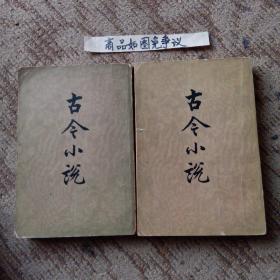 商品如图免争议
古今小说
古今小说